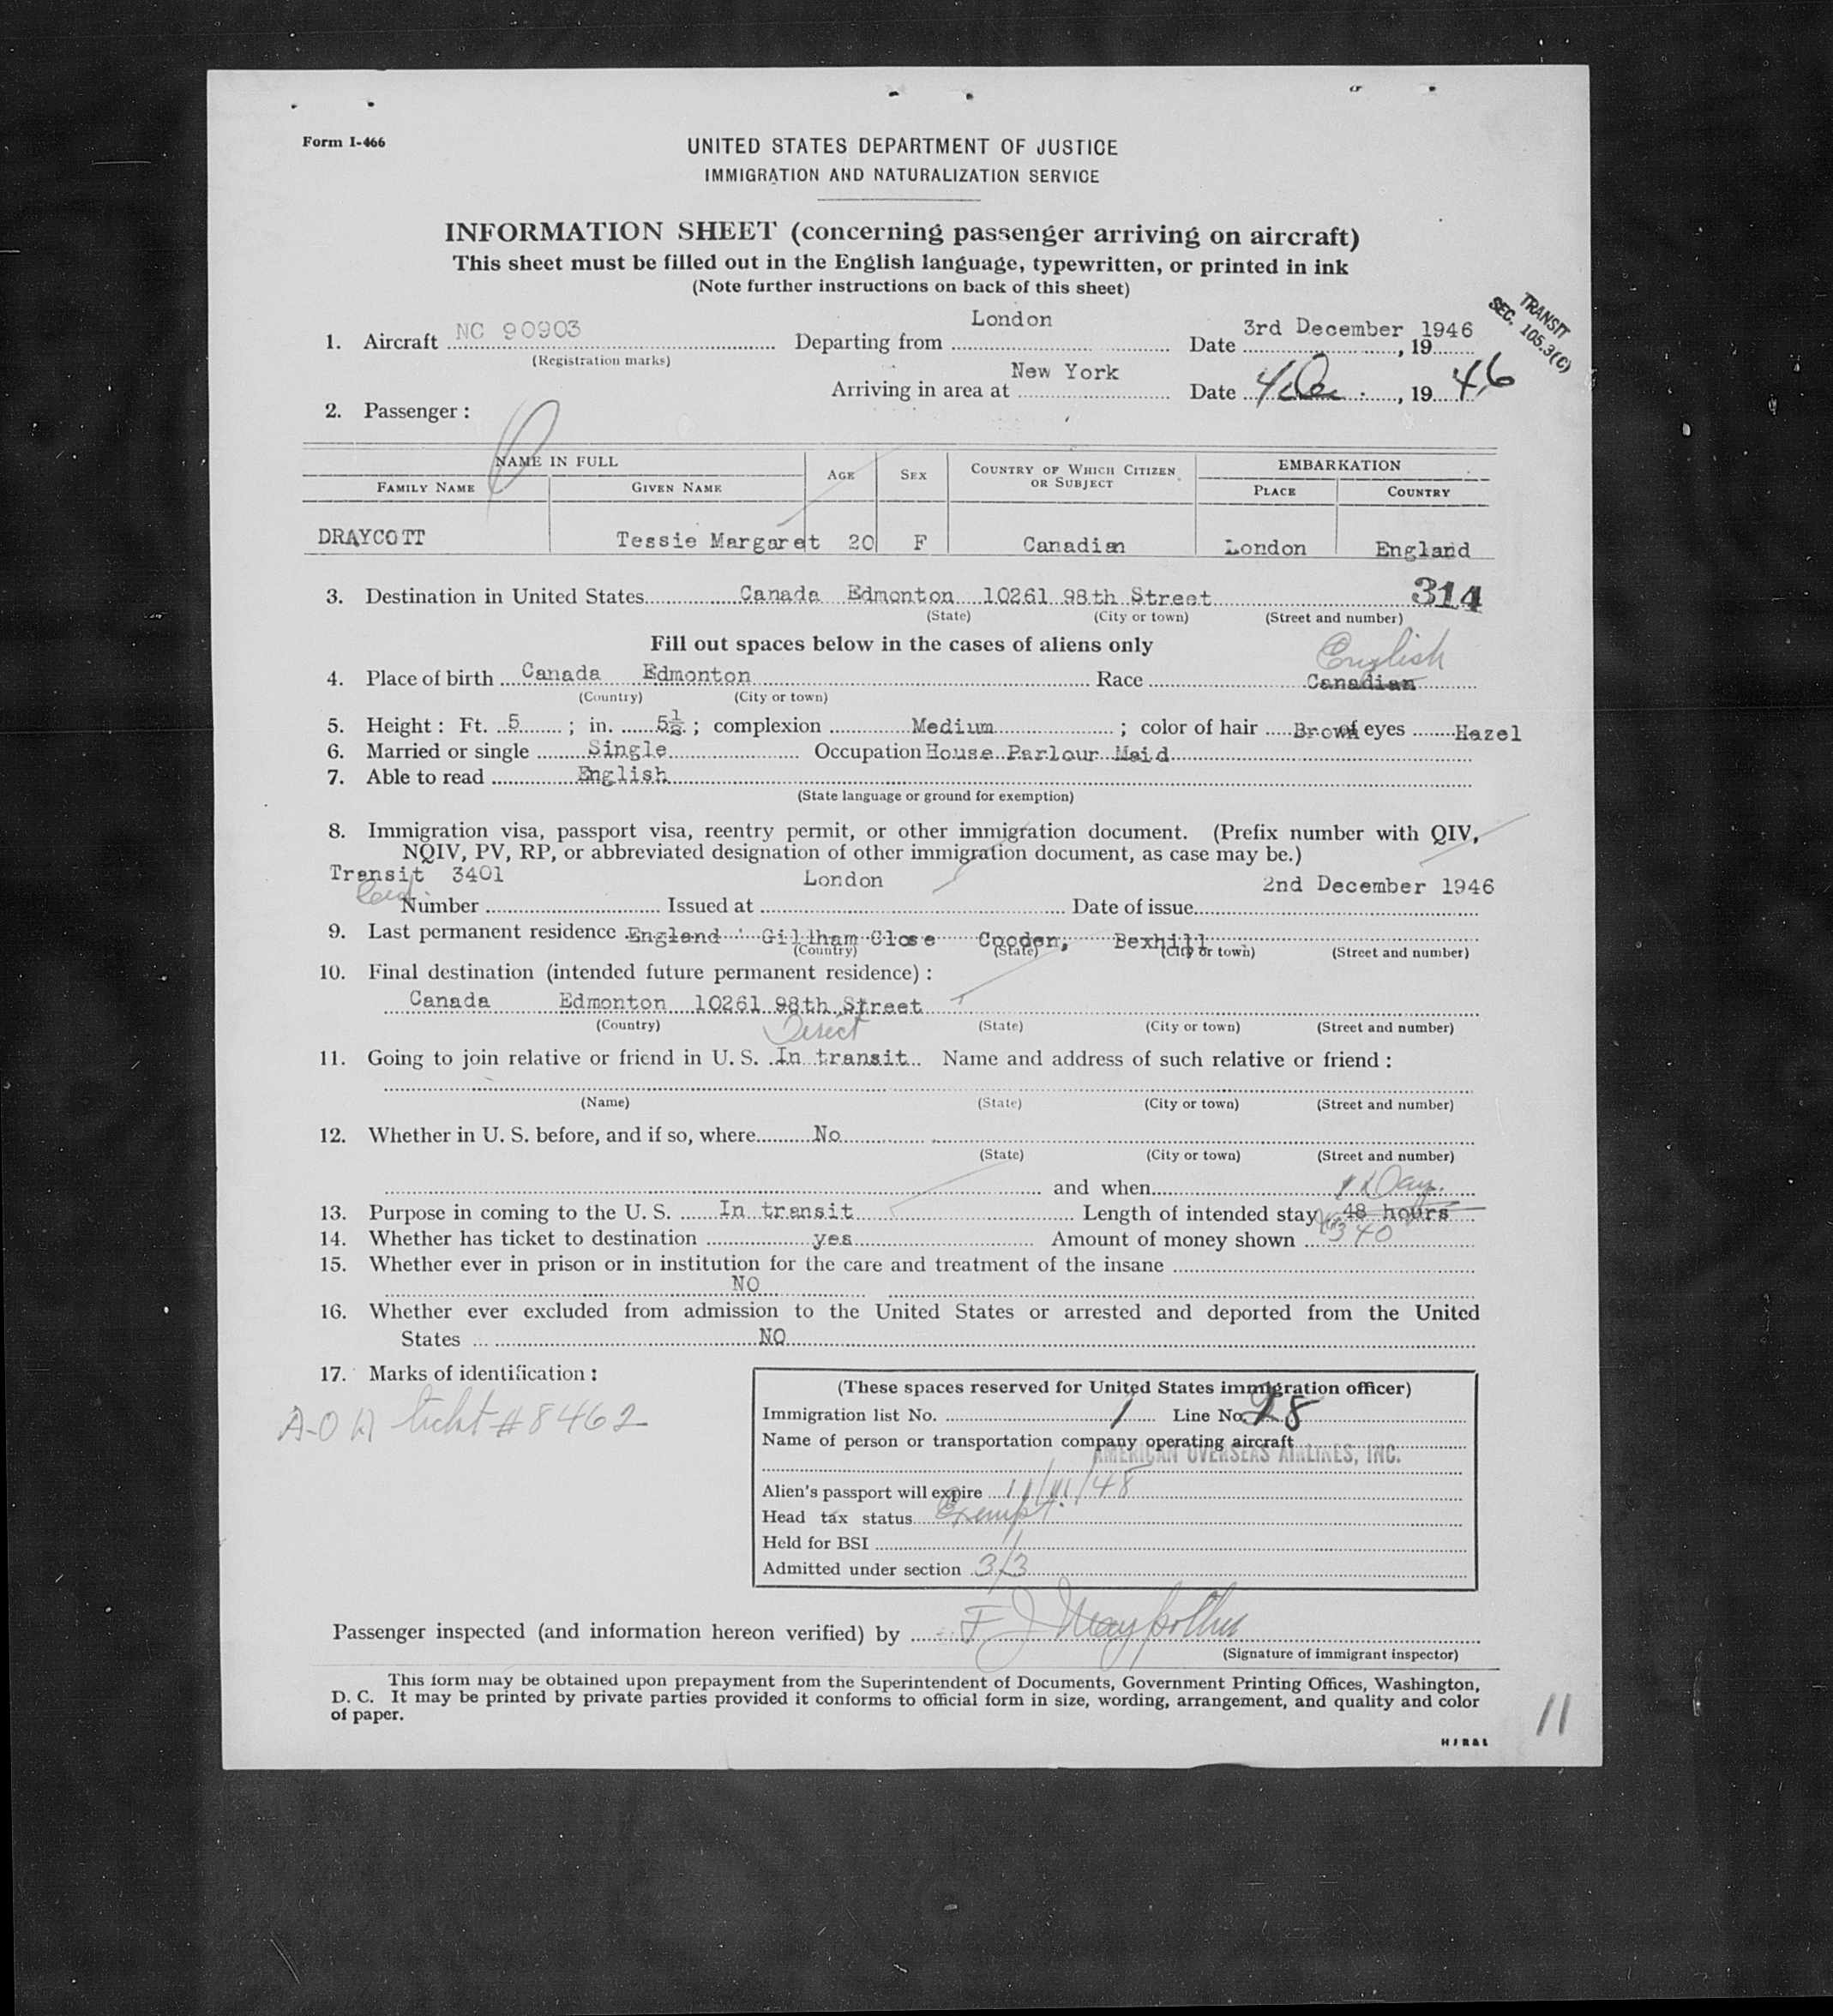 Form I-466
UNITED STATES DEPARTMENT OF JUSTICE
IMMIGRATION AND NATURALIZATION SERVICE
INFORMATION SHEET (concerning passenger arriving on aircraft)
This sheet must be filled out in the English language, typewritten, or printed in ink
(Note further instructions on back of this sheet)
TRANSIT
SEC. 105.3(C)
1. Aircraft NC 90903 Departing from London Date 3rd December 1946, 19
(Registration marks)
Arriving in area at New York Date 4 Dec, 19 46
2. Passenger :
NAME IN FULL AGE SEX COUNTRY OF WHICH CITIZEN OR SUBJECT EMBARKATION
FAMILY NAME GIVEN NAME PLACE COUNTRY
DRAYCOTT Tessie Margaret 20 F Canadian London England
3. Destination in United States Canada Edmonton 10261 98th Street 314
(State) (City or town) (Street and number)
Fill out spaces below in the cases of aliens only
English
4. Place of birth Canada Edmonton Race Canadian
(Country) (City or town)
5. Height : Ft. 5 ; in. 5½ ; complexion Medium ; color of hair Brown of eyes Hazel
6. Married or single Single Occupation House Parlour Maid
7. Able to read English
(State language or ground for exemption)
8. Immigration visa, passport visa, reentry permit, or other immigration document. (Prefix number with QIV,
NQIV, PV, RP, or abbreviated designation of other immigration document, as case may be.)
Transit 3401 London 2nd December 1946
Number Issued at Date of issue
9. Last permanent residence England Gillham Close Cooden, Bexhill
(Country) (State) (City or town) (Street and number)
10. Final destination (intended future permanent residence) :
Canada Edmonton 10261 98th Street
(Country) (State) (City or town) (Street and number)
Direct
11. Going to join relative or friend in U. S. In transit Name and address of such relative or friend :
(Name) (State) (City or town) (Street and number)
12. Whether in U. S. before, and if so, where No
(State) (City or town) (Street and number)
and when
Day.
13. Purpose in coming to the U. S. In transit Length of intended stay 48 hours
14. Whether has ticket to destination yes Amount of money shown 340
15. Whether ever in prison or in institution for the care and treatment of the insane
NO
16. Whether ever excluded from admission to the United States or arrested and deported from the United
States NO
17. Marks of identification :
A-O A ticket # 8462
(These spaces reserved for United States immigration officer)
Immigration list No. 1 Line No. 28
Name of person or transportation company operating aircraft
AMERICAN OVERSEAS AIRLINES, INC.
Alien's passport will expire 11/11/48
Head tax status Exempt.
Held for BSI
Admitted under section 3/3
Passenger inspected (and information hereon verified) by F J
(Signature of immigrant inspector)
This form may be obtained upon prepayment from the Superintendent of Documents, Government Printing Offices, Washington,
D. C. It may be printed by private parties provided it conforms to official form in size, wording, arrangement, and quality and color
of paper.
11